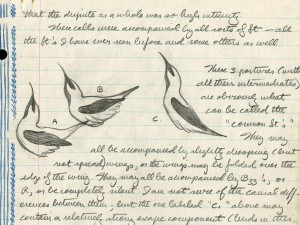 that the dispute as a whole was so high intensity.
These calls were accompanied by all sorts of ft — all
the ft's I have ever seen before and some others as well
A
B.
C.
These 3 postures (with
all their intermediates)
are obviously what
can be called the
"common ft's."
They may
all be accompanied by slightly drooping (but
not spread wings, or the wings may be folded over the
edge of the wing. They may all be accompanied by
R, or be completely silent. I am not sure of the causal diff-
erences between them, but the one labeled "C" above may
contain a relatively strong escape component (birds in this